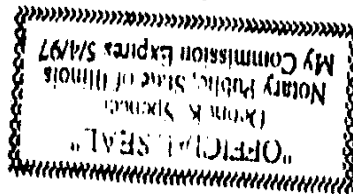 "OFFICIAL SEAL"
K. Spencer
Notary Public, State of Illinois
My Commission Expires 5/4/97